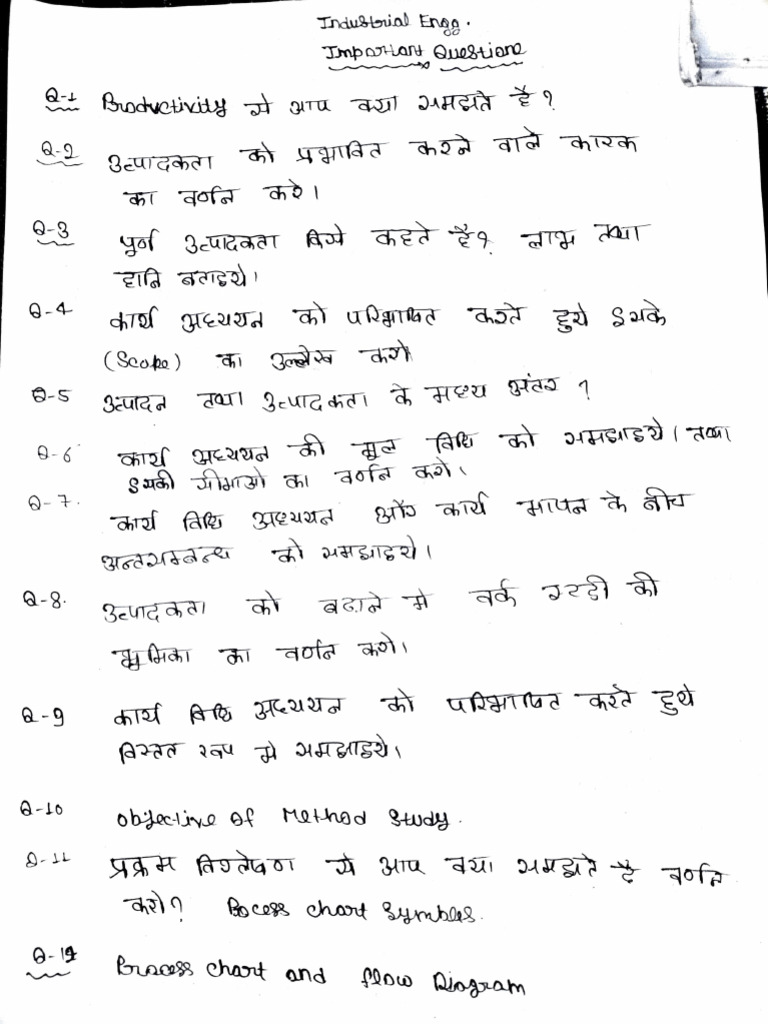 Industrial Engg.
Important Questions
Q-1 Productivity से आप क्या समझते है ?
Q-2 उत्पादकता को प्रभावित करने वाले कारक
का वर्णन करे।
Q-3 पूर्ण उत्पादकता किसे कहते है? लाभ तथा
हानि बताइये।
Q-4 कार्य अध्ययन को परिभाषित करते हुये इसके
(Scope) का उल्लेख करो
Q-5 उत्पादन तथा उत्पादकता के मध्य अंतर ?
Q-6 कार्य अध्ययन की मूल विधि को समझाइये। तथा
इसकी सीमाओ का वर्णन करो।
Q-7. कार्य विधि अध्ययन और कार्य मापन के बीच
अन्तसम्बन्ध को समझाइये।
Q-8. उत्पादकता को बढाने मे वर्क स्टडी की
भूमिका का वर्णन करो।
Q-9 कार्य विधि अध्ययन को परिभाषित करते हुये
विस्तत रूप मे समझाइये।
Q-10 objective of Method Study.
Q-11 प्रक्रम विश्लेषण से आप क्या समझते है वर्णन
करो? Pocess chart Symbles.
Process chart and flow Diagram